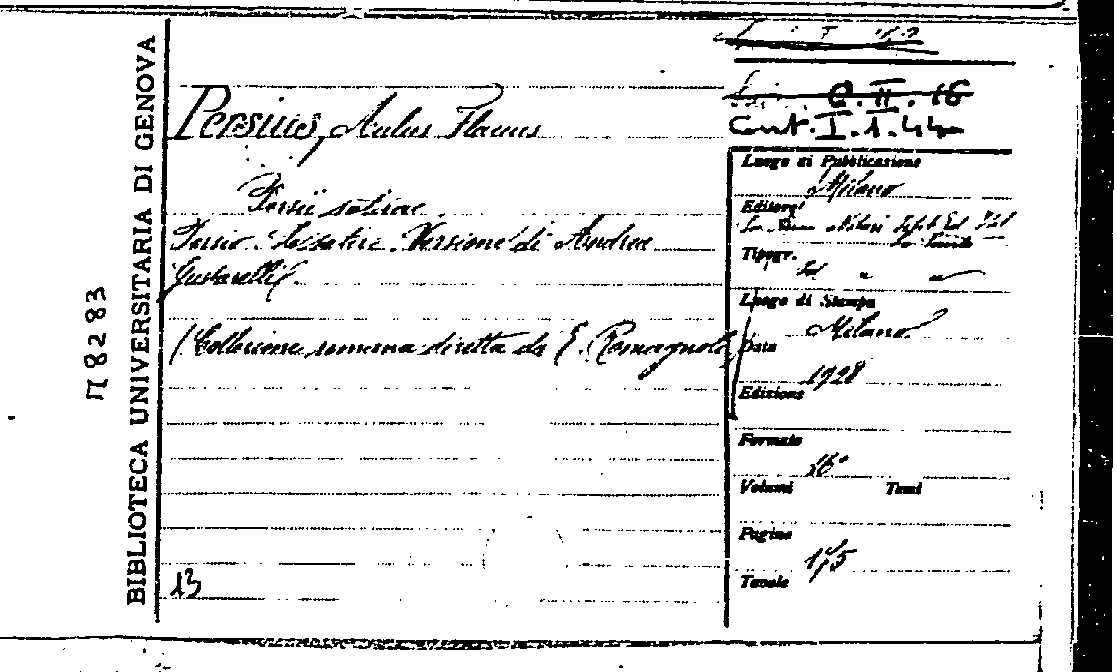 BIBLIOTECA UNIVERSITARIA DI GENOVA
78283
C. II. 16
Cont. I. 1. 44
Persius, Aulus Flacus
Persii satirae
Persio. Le satire. Versione di Andrea
Gustarelli.
(Collezione romana diretta da E. Romagnoli)
13
Luogo di Pubblicazione
Milano
Editore
Tipogr.
Luogo di Stampa
Milano
Data
1928
Edizione
Formato
16°
Volumi Tomi
Pagine
175
Tavole